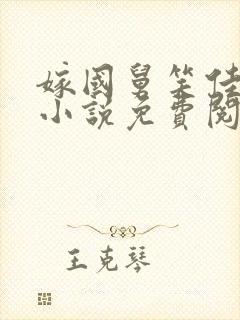 嫁國舅笨佳
小說免費閱
王克琴